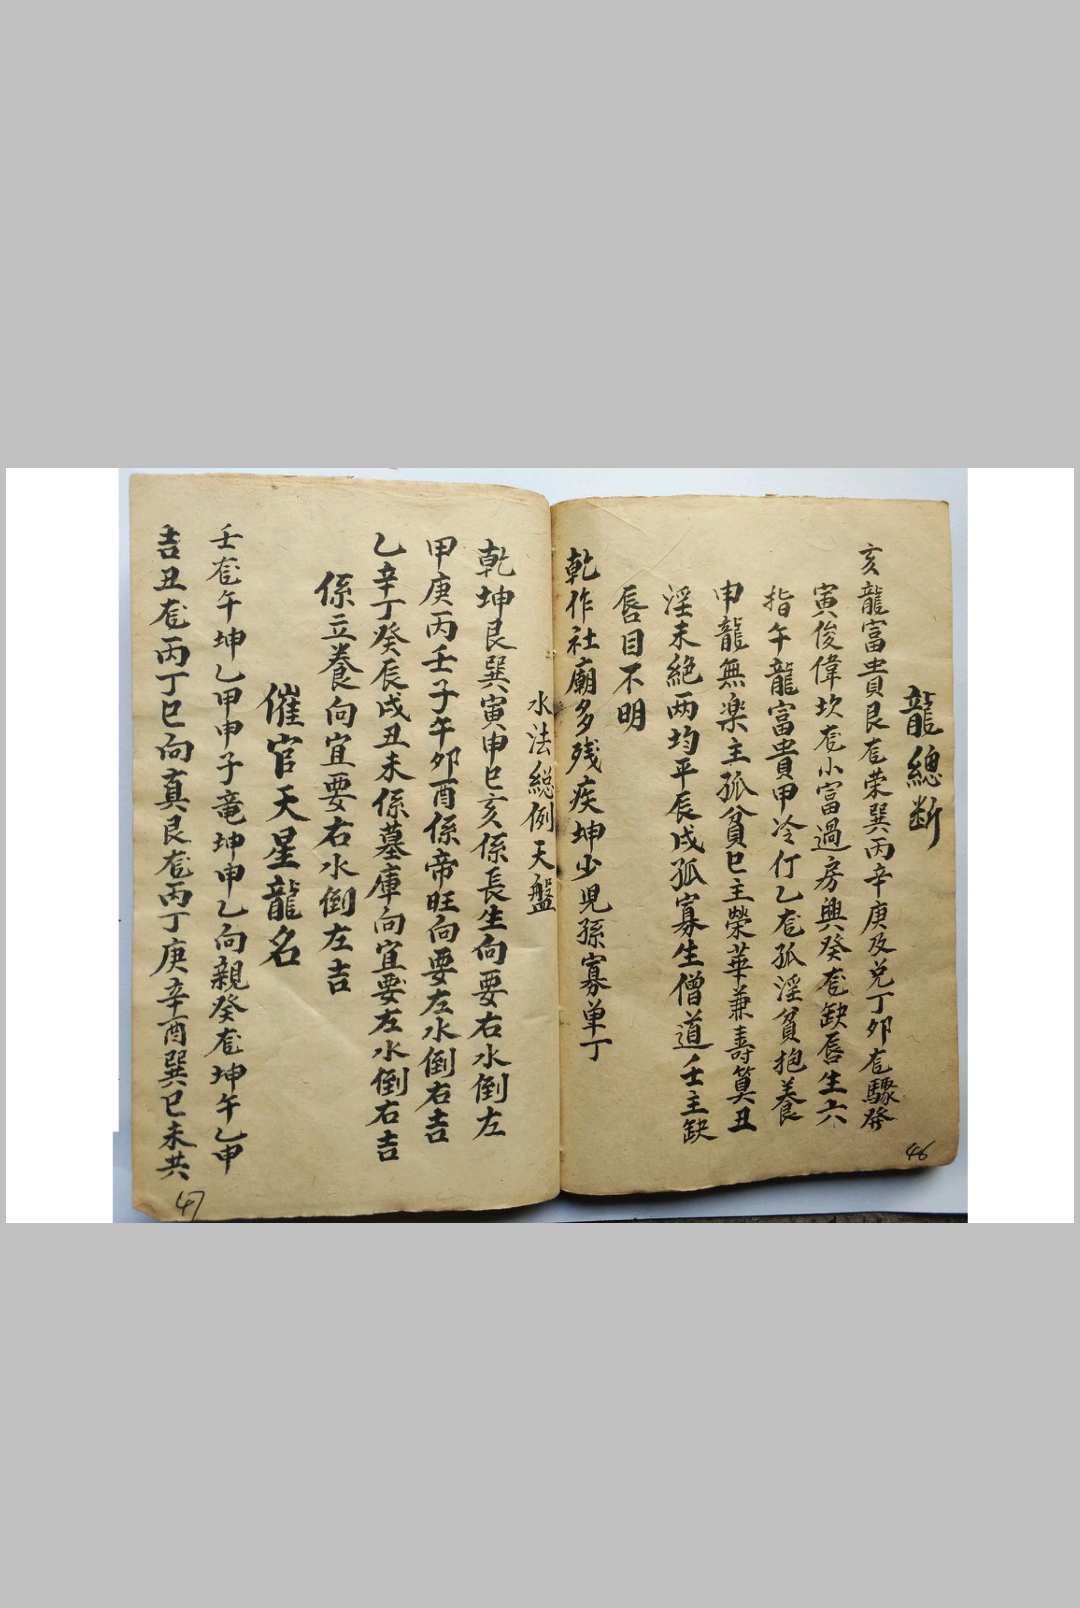 龍總断
亥龍富貴艮𪚑荣巽丙辛庚及兑丁卯𪚑驟發
寅俊偉坎𪚑小富過房興癸𪚑缺唇生六
指午龍富貴甲冷仃乙𪚑孤淫貧抱養
申龍無楽主孤貧巳主榮華兼壽算丑
淫未絕两均平辰戌孤寡生僧道壬主缺
唇目不明
乾作社廟多残疾坤少児孫寡单丁
46
水法総例天盤
乾坤艮巽寅申巳亥係長生向要右水倒左
甲庚丙壬子午卯酉係帝旺向要左水倒右吉
乙辛丁癸辰戌丑未係墓庫向宜要左水倒右吉
係立養向宜要右水倒左吉
催官天星龍名
壬𪚑午坤乙甲申子竜坤申乙向親癸𪚑坤午乙申
吉丑𪚑丙丁巳向真艮𪚑丙丁庚辛酉巽巳未共
47